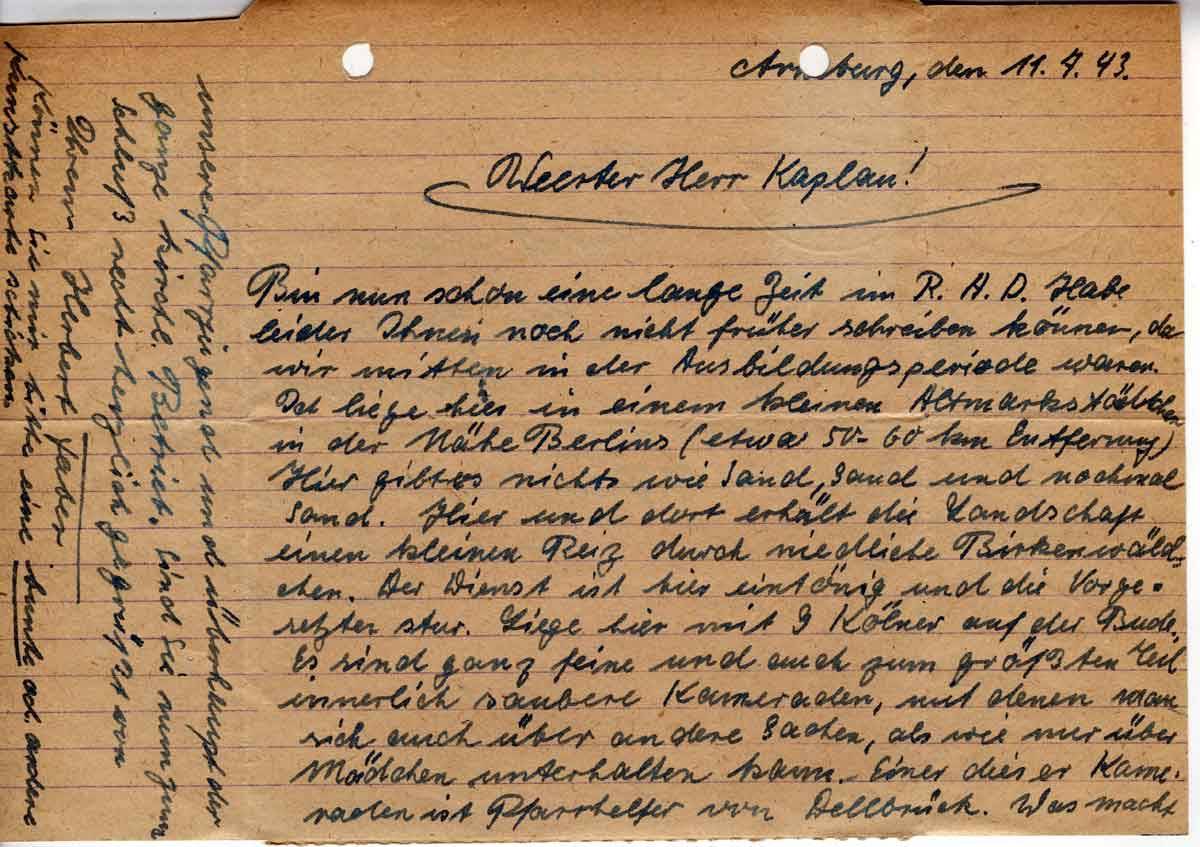 Arneburg, den 11.4.43.
Werter Herr Kaplan!
Bin nun schon eine lange Zeit im R. A. D. Habe
leider Ihnen noch nicht früher schreiben können, da
wir mitten in der Ausbildungsperiode waren.
Ich liege hier in einem kleinen Altmarkstädtchen
in der Nähe Berlins (etwa 50-60 km Entfernung)
Hier gibt es nichts wie Sand, Sand und nochmal
Sand. Hier und dort erhält die Landschaft
einen kleinen Reiz durch niedliche Birkenwäld-
chen. Der Dienst ist hier eintönig und die Vorge-
setzten stur. Liege hier mit 9 Kölner auf der Bude.
Es sind ganz feine und auch zum größten Teil
innerlich saubere Kameraden, mit denen man
sich auch über andere Sachen, als wie nur über
Mädchen unterhalten kann. Einer dieser Kame-
raden ist Pfarrhelfer von Dellbrück. Was macht
unsere Pfarrjugend und überhaupt der
ganze kirchl. Betrieb. Sind Sie nun zum
Schluß recht herzlich gegrüßt von
Ihrem Herbert Faber
Können Sie mir bitte eine bunte od. andere
Kunstkarte schicken